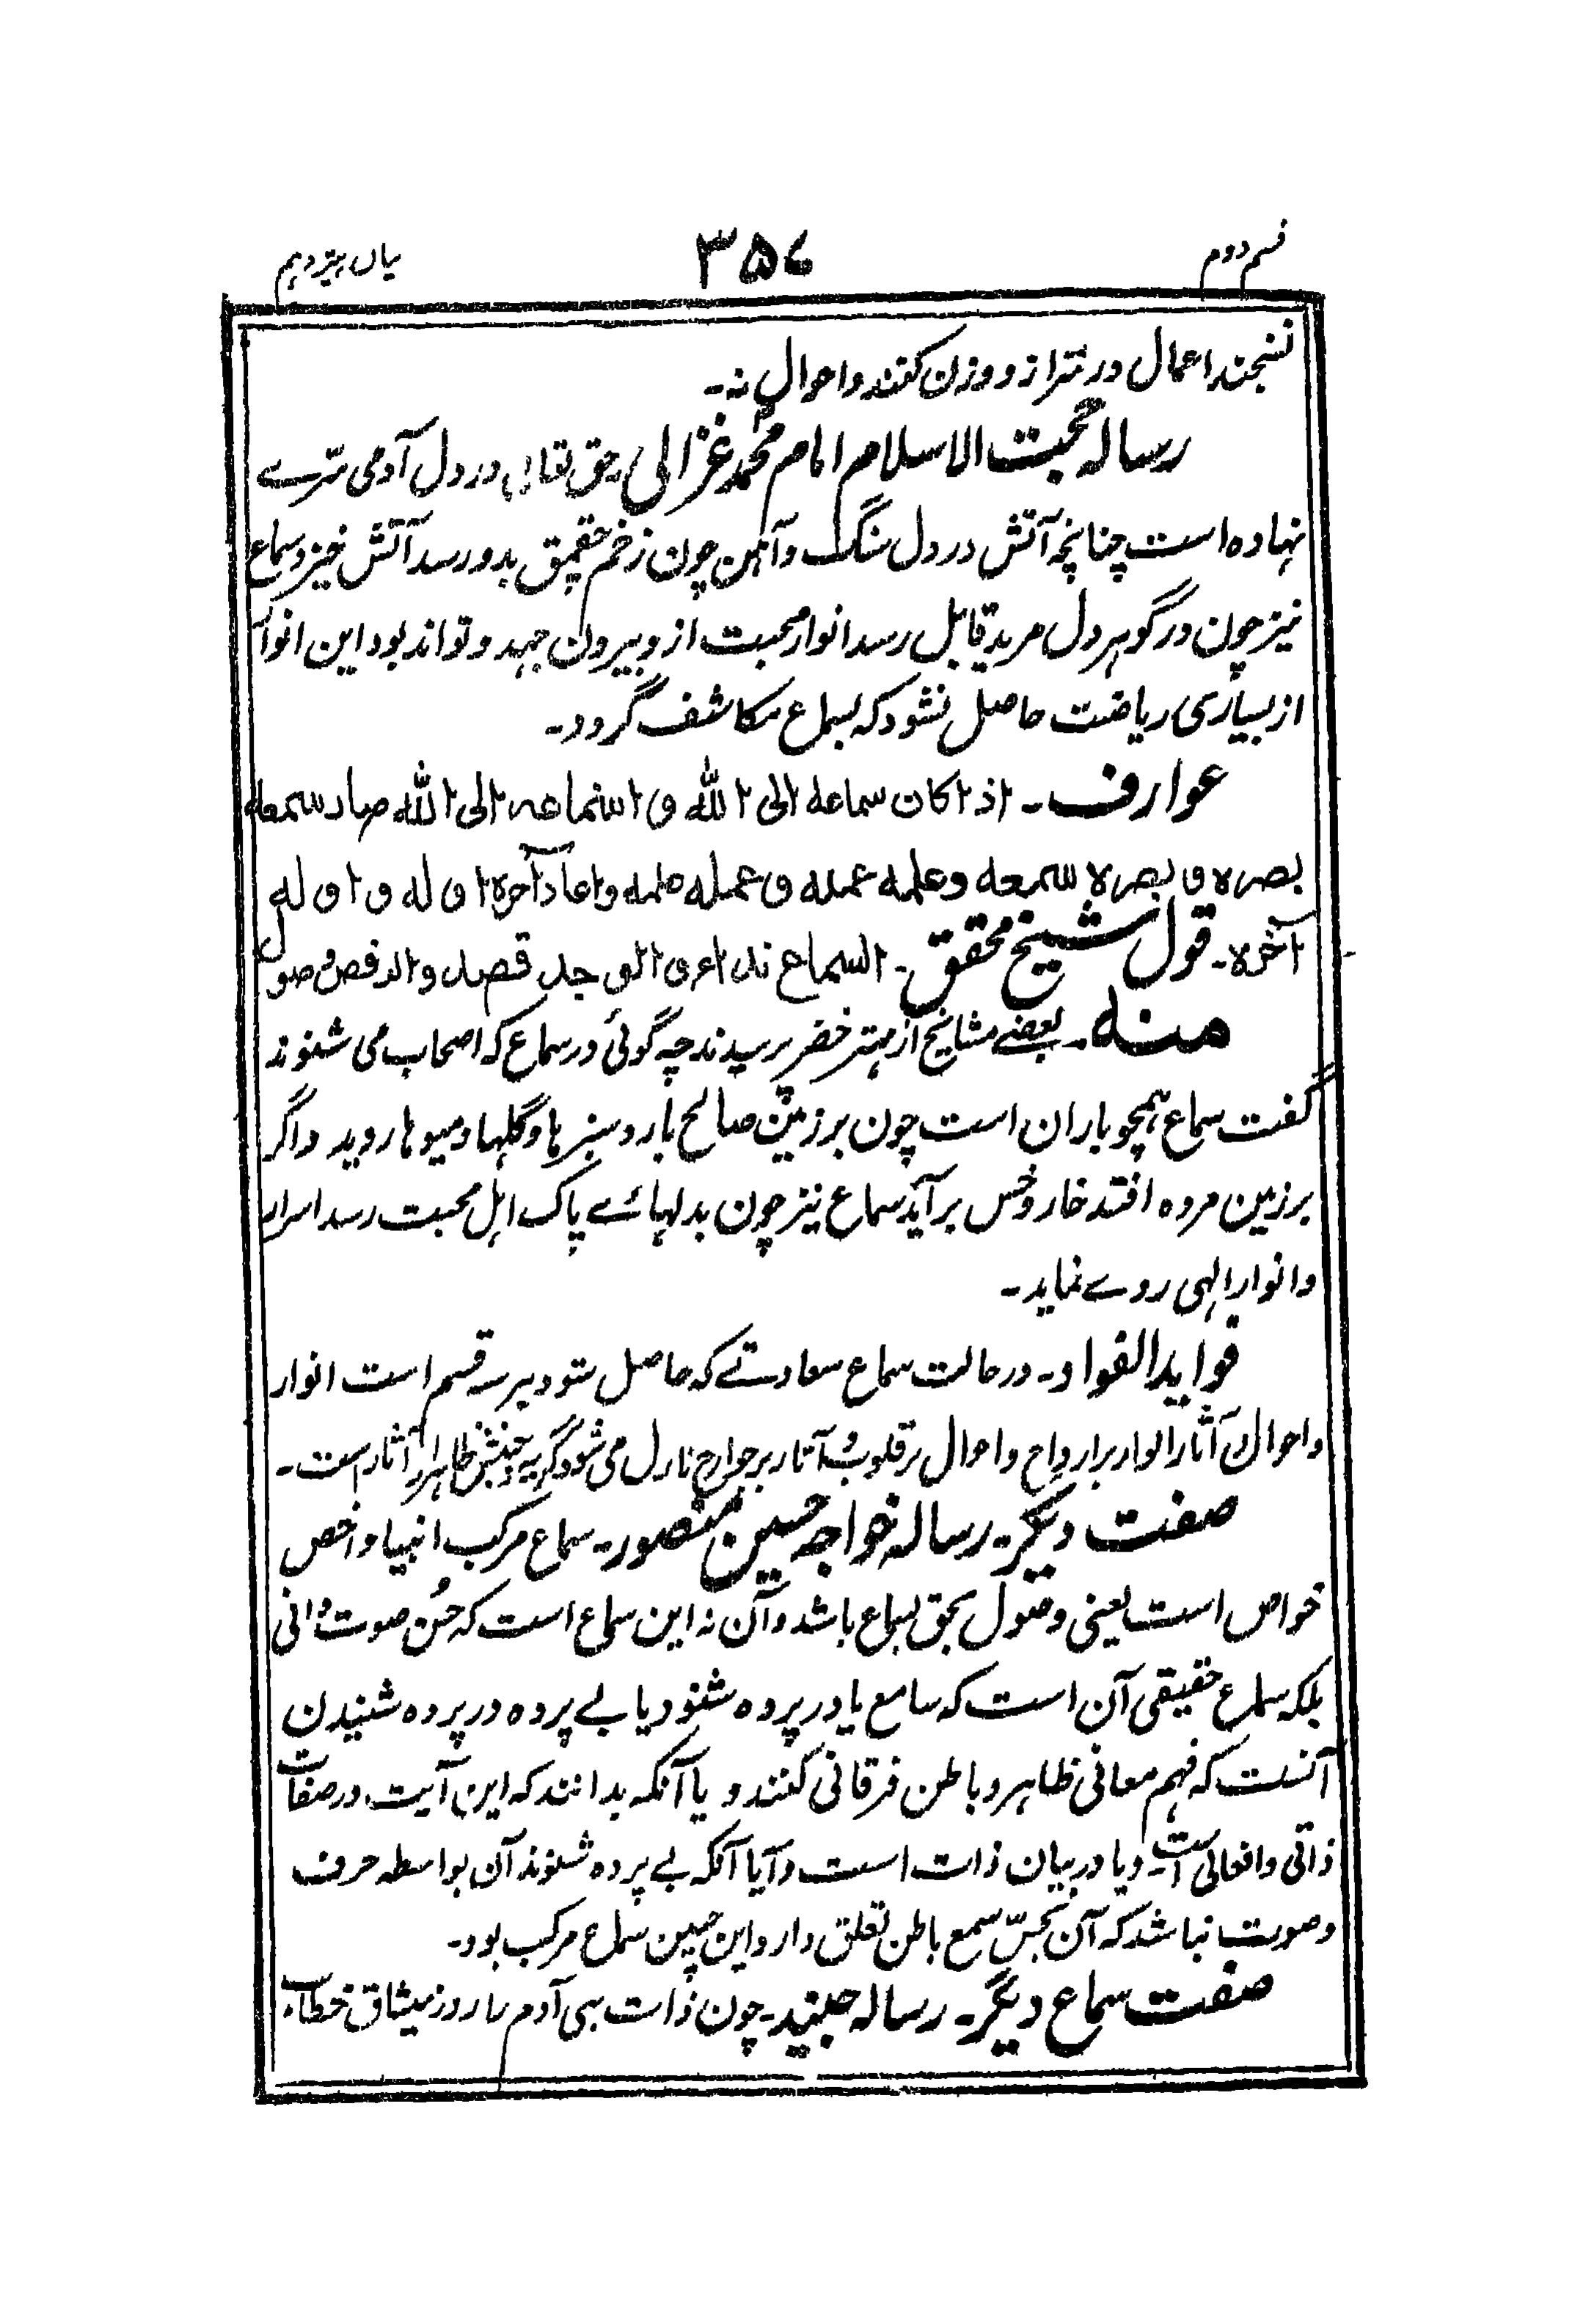 قسم دوم
۳۵۷
بیان ہیزدہم
نسنجند اعمال در ترازو وزن کنند و احوال نہ۔
رسالہ حجت الاسلام امام محمد غزالی حق تعالی در دل آدمی سرے
نہادہ است چنانچہ آتش در دل سنگ و آہن چون زخم چقمق بدو رسد آتش خیزد سماع
نیز چون در گوہر دل مرید قابل رسد انوار محبت از و بیرون جہد و تواند بود این انوار
از بسیاری ریاضت حاصل نشود کہ بسماع مکاشف گردد۔
عوارف۔ اذا کان سماعہ الی اللہ و استماعہ الی اللہ صار سمعہ
بصرہ و بصرہ سمعہ و علمہ عملہ و عملہ علمہ و اعاد آخرہ اولہ و اولہ
آخرہ۔ قول شیخ محقق۔ السماع نداء و الوجد قصد و الرقص وصول
منہ۔ بعضے مشایخ از مہتر خضر پرسیدند چہ گوئی در سماع کہ اصحاب می شنوند
گفت سماع ہمچو باران است چون بر زمین صالح بارد سبزہا و گلہا و میوہا روید و اگر
بر زمین مردہ افتد خار و خس برآید سماع نیز چون بدلہائے پاک اہل محبت رسد اسرار
و انوار الہی روے نماید۔
فواید الفواد۔ در حالت سماع سعادتے کہ حاصل شود بر سہ قسم است انوار
و احوال و آثار انوار بر ارواح و احوال بر قلوب و آثار بر جوارح نازل می شود گریہ و جنبش ظاہر از آثار است۔
صفت دیگر۔ رسالہ خواجہ حسین منصور۔ سماع مرکب انبیا و اخص
خواص است یعنی وصول بحق بسماع باشد و آن نہ این سماع است کہ حُسن صوت دانی
بلکہ سماع حقیقی آن است کہ سامع یا در پردہ شنود یا بے پردہ در پردہ شنیدن
آنست کہ فہم معانی ظاہر و باطن فرقانی کنند و یا آنکہ بدانند کہ این آیت در صفات
ذاتی و افعالی است و یا در بیان ذات است و آیا آنکہ بے پردہ شنوند آن بواسطہ حرف
و صوت نباشد کہ آن بحسّ سمع باطن تعلق دارد این چنین سماع مرکب بود۔
صفت سماع دیگر۔ رسالہ جنید۔ چون ذات بنی آدم را روز میثاق خطاب